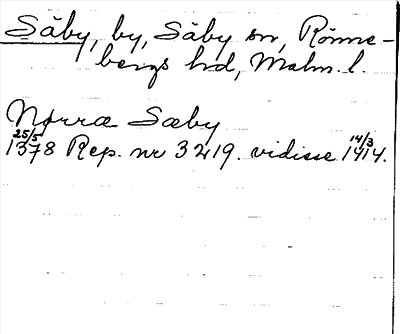 Säby, by, Säby sn, Rönne-
bergs hd, Malm. l.
Nørræ Sæby
25/5 1378 Rep. nr 3219. vidisse 14/3 1414.